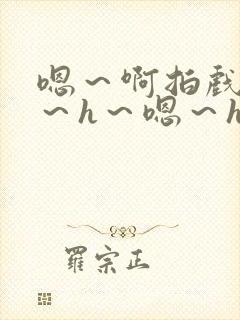 嗯～啊拍戏
～h～嗯～h
羅宗正